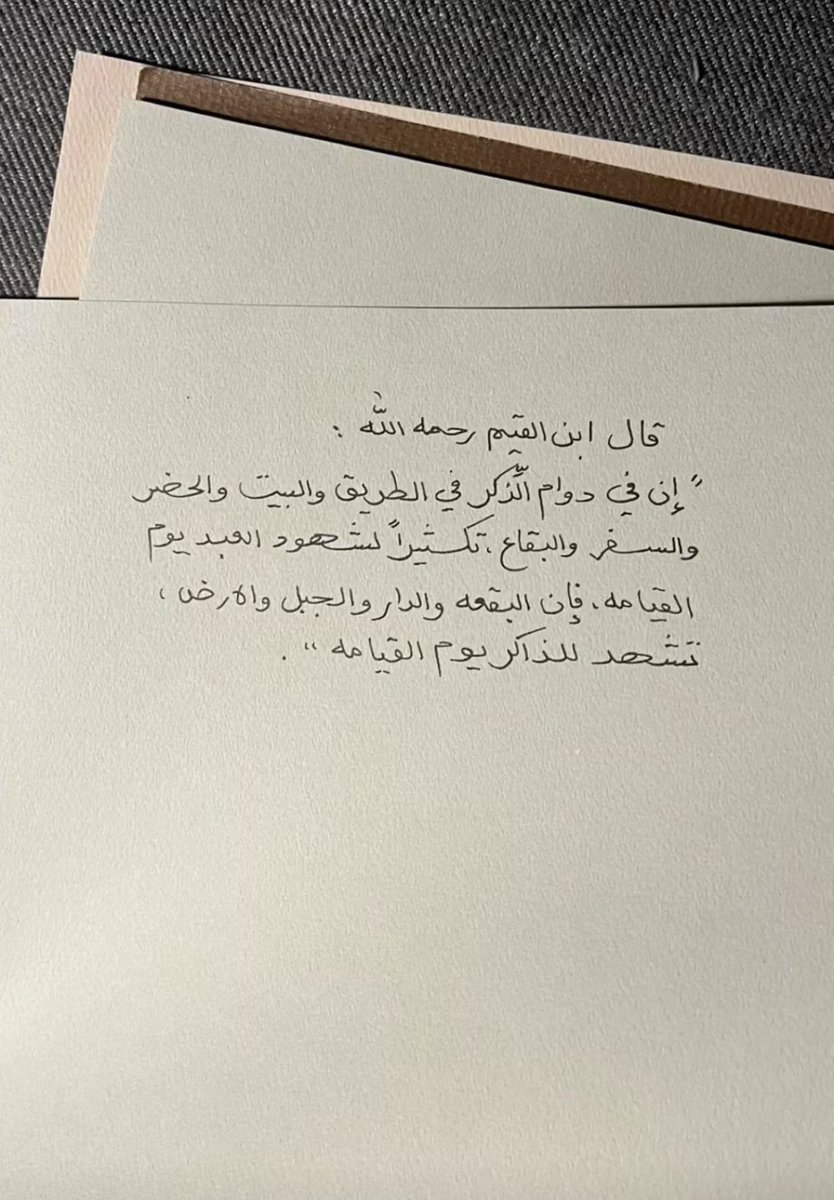 قال ابن القيم رحمه الله :
"إن في دوام الذِّكر في الطريق والبيت والحضر
والسفر والبقاع ،تكثيراً لشهود العبد يوم
القيامه، فإن البقعه والدار والجبل والارض ،
تشهد للذاكر يوم القيامه " .